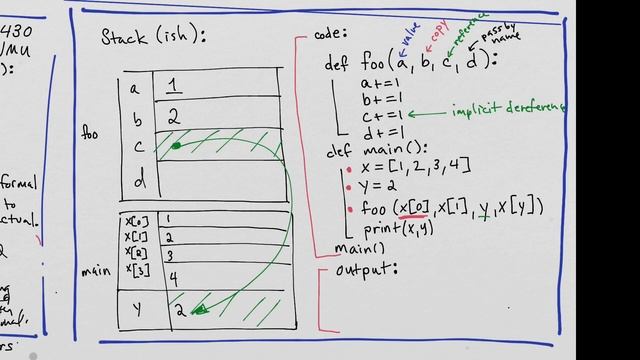 430
JMU
):
formal
to
ctual.
2
Stack (ish):
foo
a 1
b 2
c
d
main
x[0] 1
x[1] 2
x[2] 3
x[3] 4
y 2
code:
value copy reference pass by name
def foo(a, b, c, d):
a+=1
b+=1
c+=1 ← implicit dereference
d+=1
def main():
x = [1, 2, 3, 4]
y = 2
foo (x[0], x[1], y, x[y])
print(x, y)
main()
output: